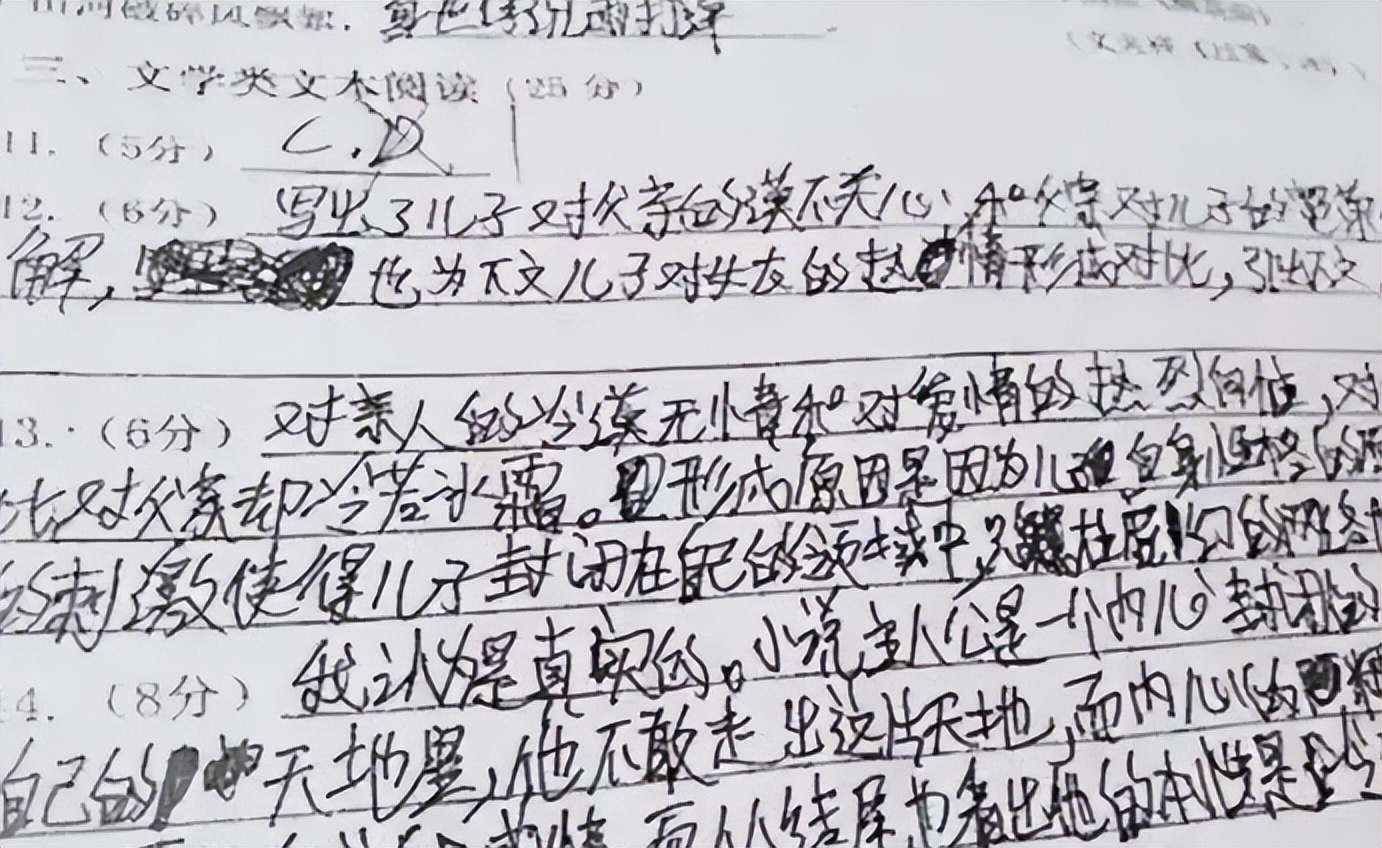 山河破碎风飘絮，身世浮沉雨打萍
三、文学类文本阅读（25 分）
11.（5分） C.D
12.（6分） 写出了儿子对父亲的漠不关心，和父亲对儿子的
解，也为下文儿子对女友的热情形成对比，引出下文
13.（6分） 对亲人的冷漠无情和对爱情的热烈向往，对
比对父亲却冷若冰霜。形成原因是因为儿子自身性格的原
的刺激使得儿子封闭在自己的领域中，只
我认为是真实的。小说主人公是一个内心封闭的
14.（8分）
自己的天地里，他不敢走出这片天地，而内心的
而从结尾为看出他的本性是